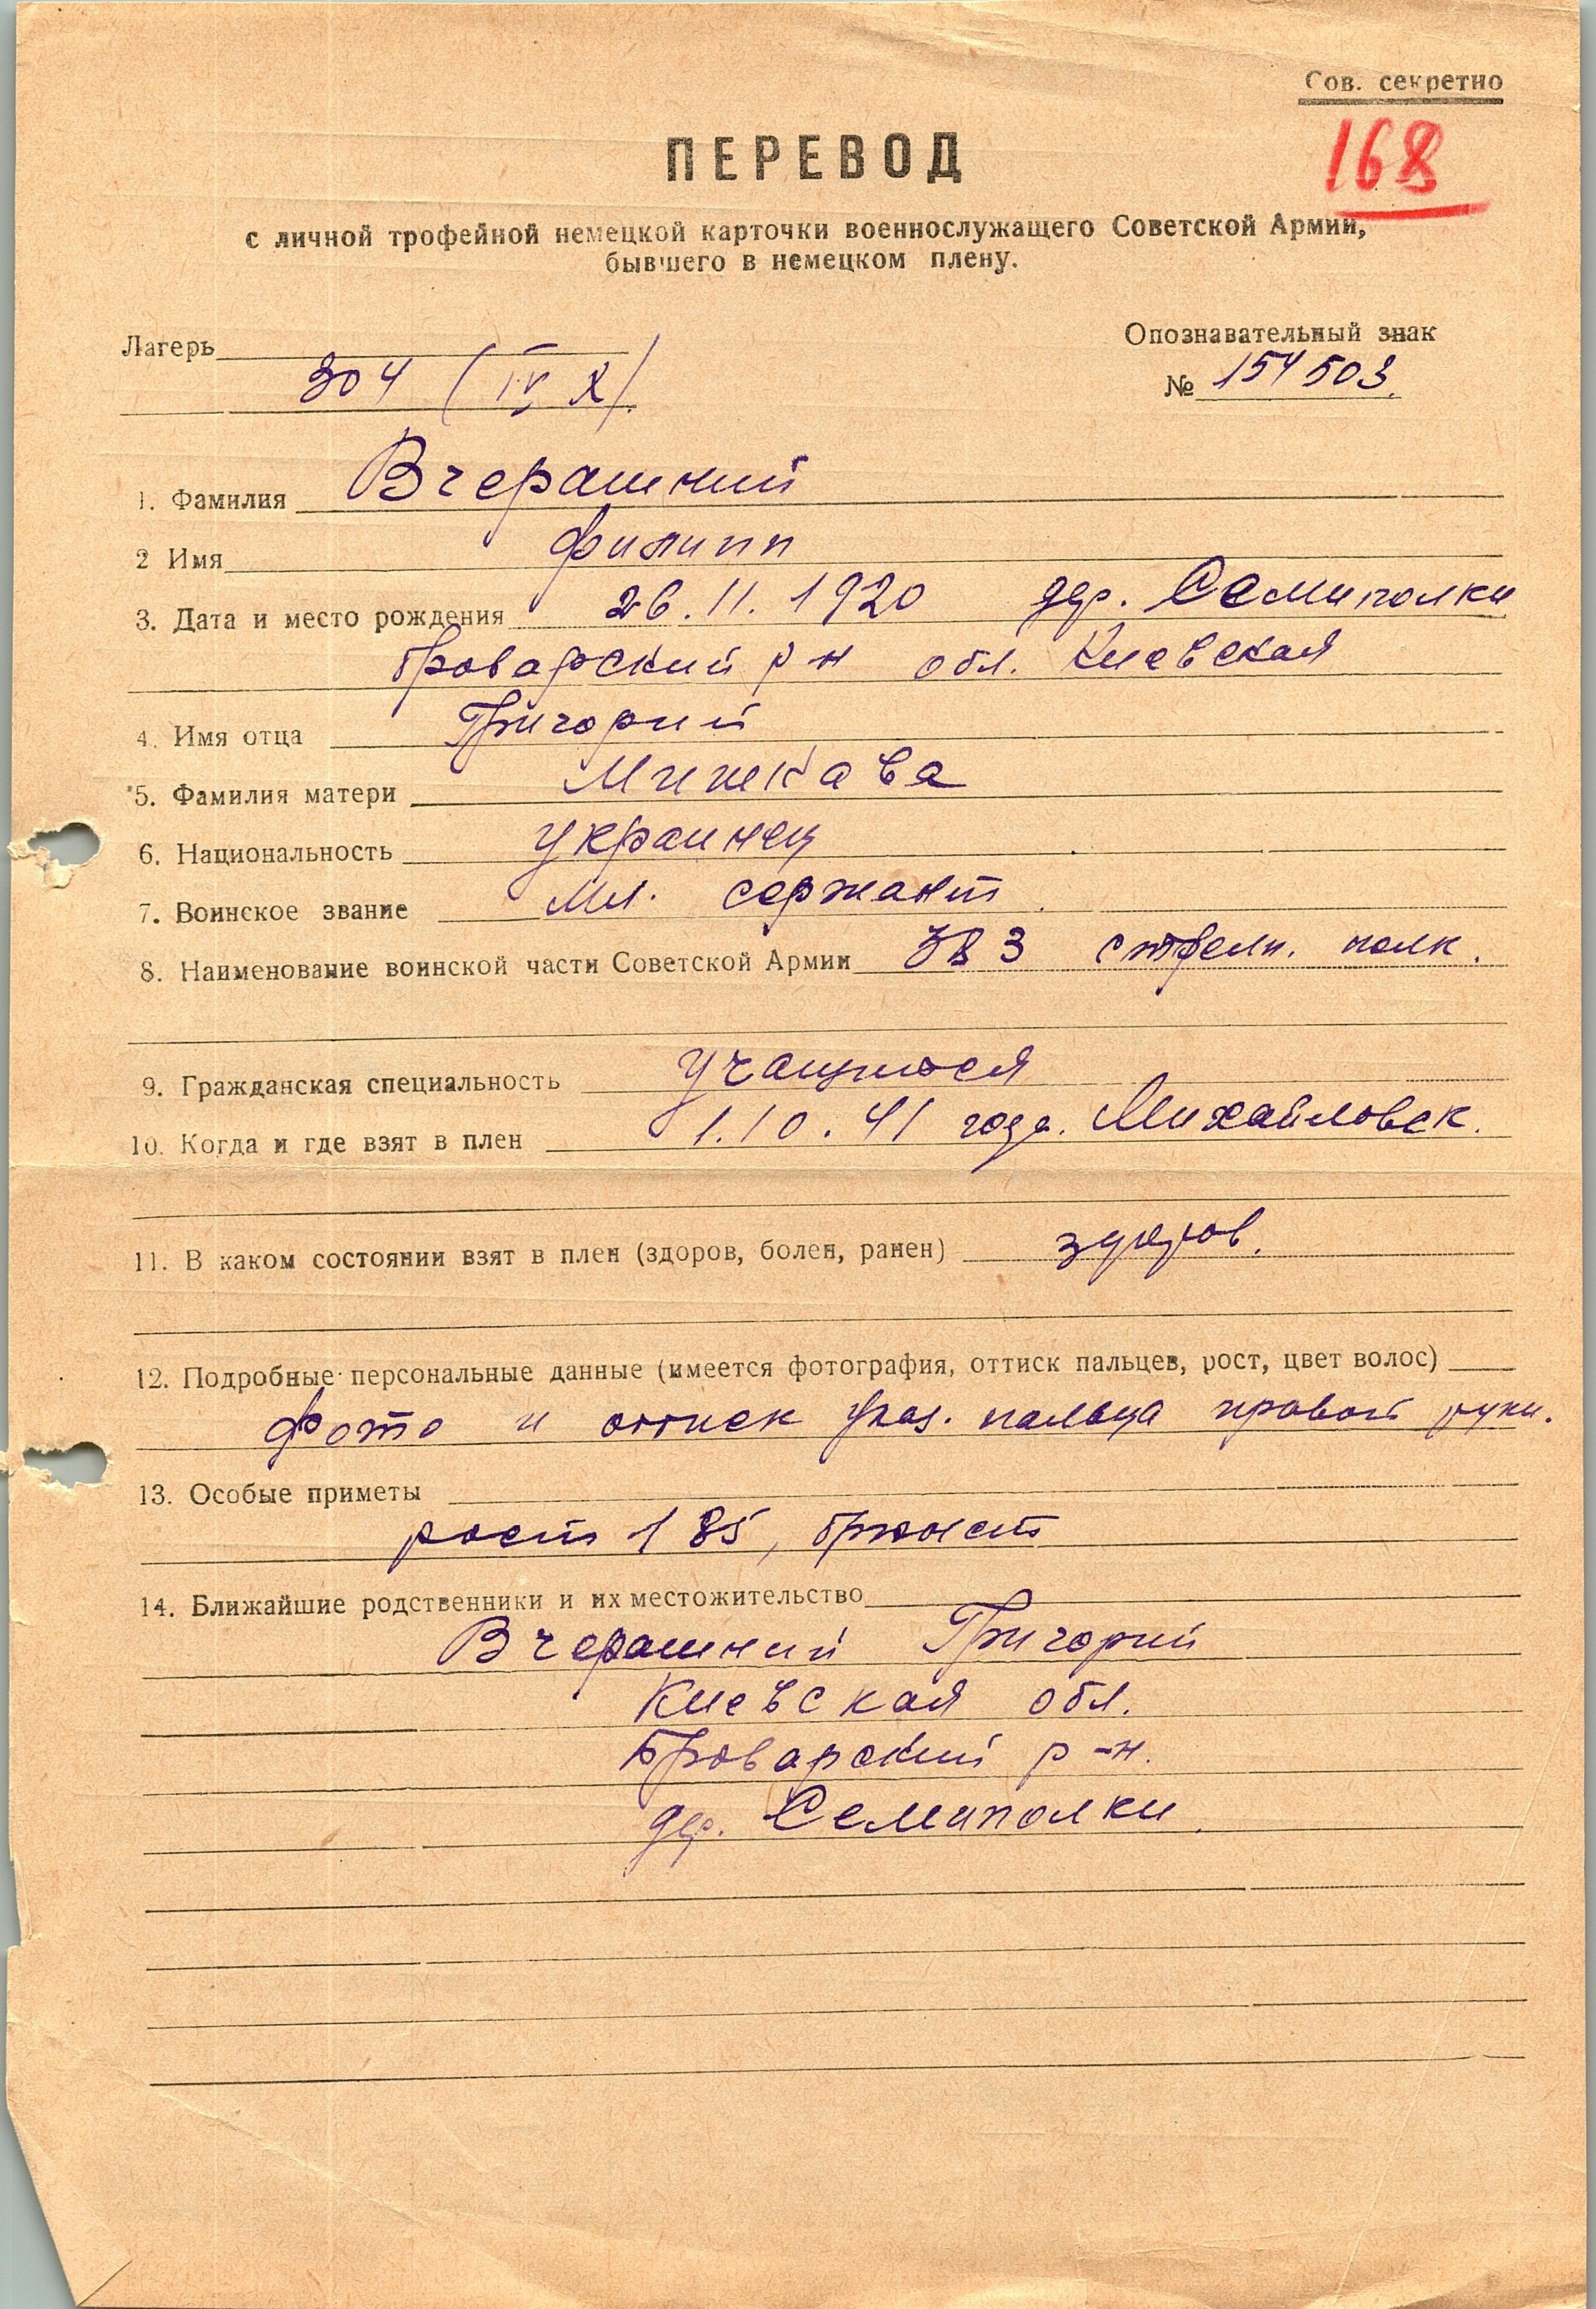 Сов. секретно
168
ПЕРЕВОД
с личной трофейной немецкой карточки военнослужащего Советской Армии,
бывшего в немецком плену.
Лагерь
304 (IV X).
Опознавательный знак
№ 154503.
1. Фамилия Вчерашний
2 Имя Филипп
3. Дата и место рождения 26.11.1920 дер. Семиполки
Броварский р-н обл. Киевская
4. Имя отца Григорий
5. Фамилия матери
6. Национальность украинец
7. Воинское звание мл. сержант.
8. Наименование воинской части Советской Армии стрелк. полк.
9. Гражданская специальность учащийся
10. Когда и где взят в плен 1.10.41 года. Михайловск.
11. В каком состоянии взят в плен (здоров, болен, ранен) здоров.
12. Подробные персональные данные (имеется фотография, оттиск пальцев, рост, цвет волос)
фото и оттиск указ. пальца правой руки.
13. Особые приметы
рост 185, брюнет
14. Ближайшие родственники и их местожительство
Вчерашний Григорий
Киевская обл.
Броварский р-н.
дер. Семиполки.